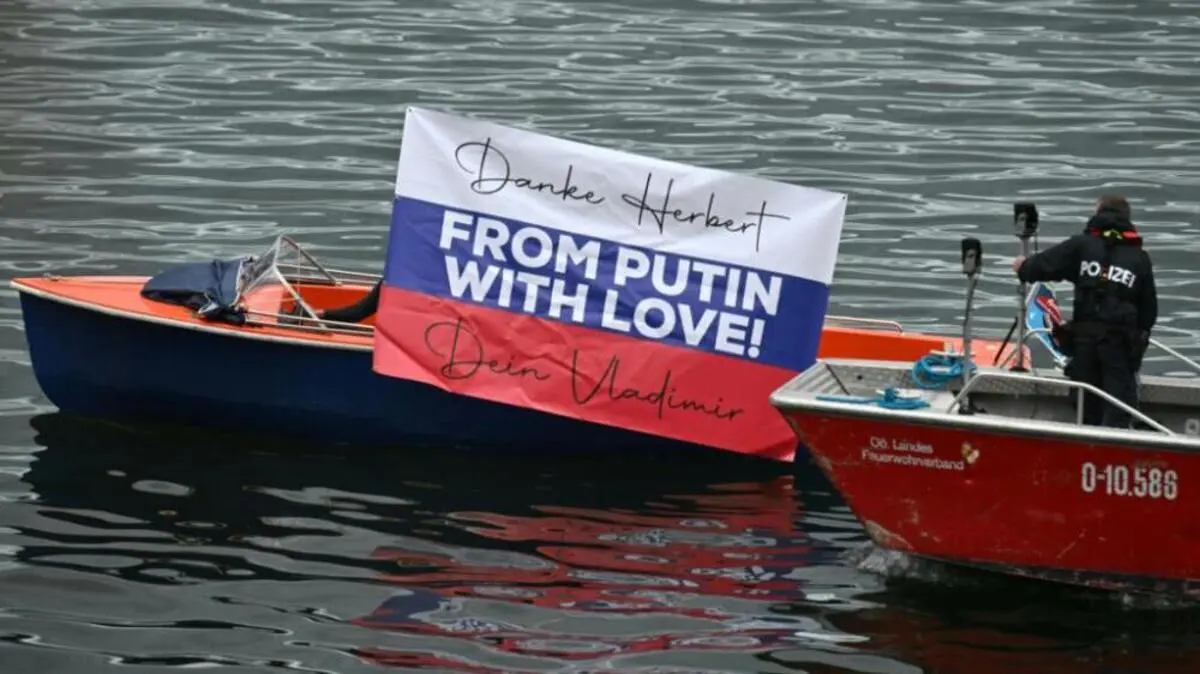 Danke Herbert
FROM PUTIN
WITH LOVE!
Dein Vladimir
POLIZEI
OÖ. Landes
Feuerwehrverband
O-10.586